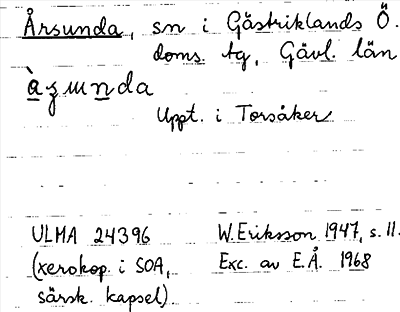 Årsunda, sn i Gästriklands Ö.
doms. tg, Gävl. län
àzunda
Uppt. i Torsåker
ULMA 24396
(xerokop. i SOA,
särsk. kapsel)
W. Eriksson 1947, s. 11.
Exc. av E.Å. 1968